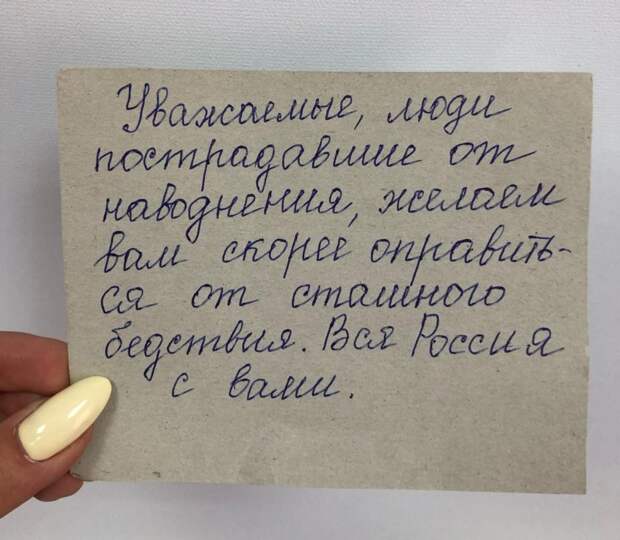 Уважаемые, люди
пострадавшие от
наводнения, желаем
вам скорее оправить-
ся от сташного
бедствия. Вся Россия
с вами.